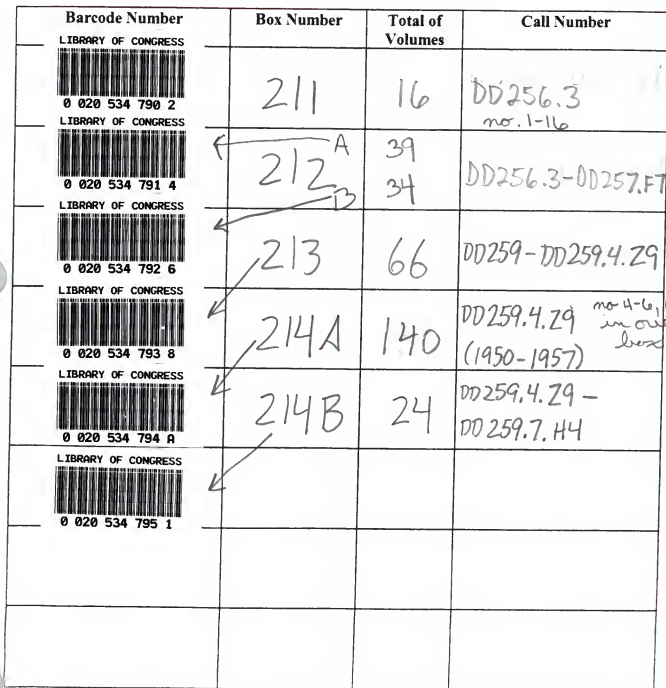 Barcode Number Box Number Total of Volumes Call Number
LIBRARY OF CONGRESS
0 020 534 790 2
211
16
DD256.3
no. 1-16
LIBRARY OF CONGRESS
0 020 534 791 4
212
A
B
39
34
DD256.3-DD257.F7
LIBRARY OF CONGRESS
0 020 534 792 6
213
66
DD259-DD259.4.Z9
LIBRARY OF CONGRESS
0 020 534 793 8
214A
140
DD259.4.Z9
(1950-1957)
no 4-6,
in
box
LIBRARY OF CONGRESS
0 020 534 794 A
214B
24
DD259.4.Z9-
DD259.7.H4
LIBRARY OF CONGRESS
0 020 534 795 1